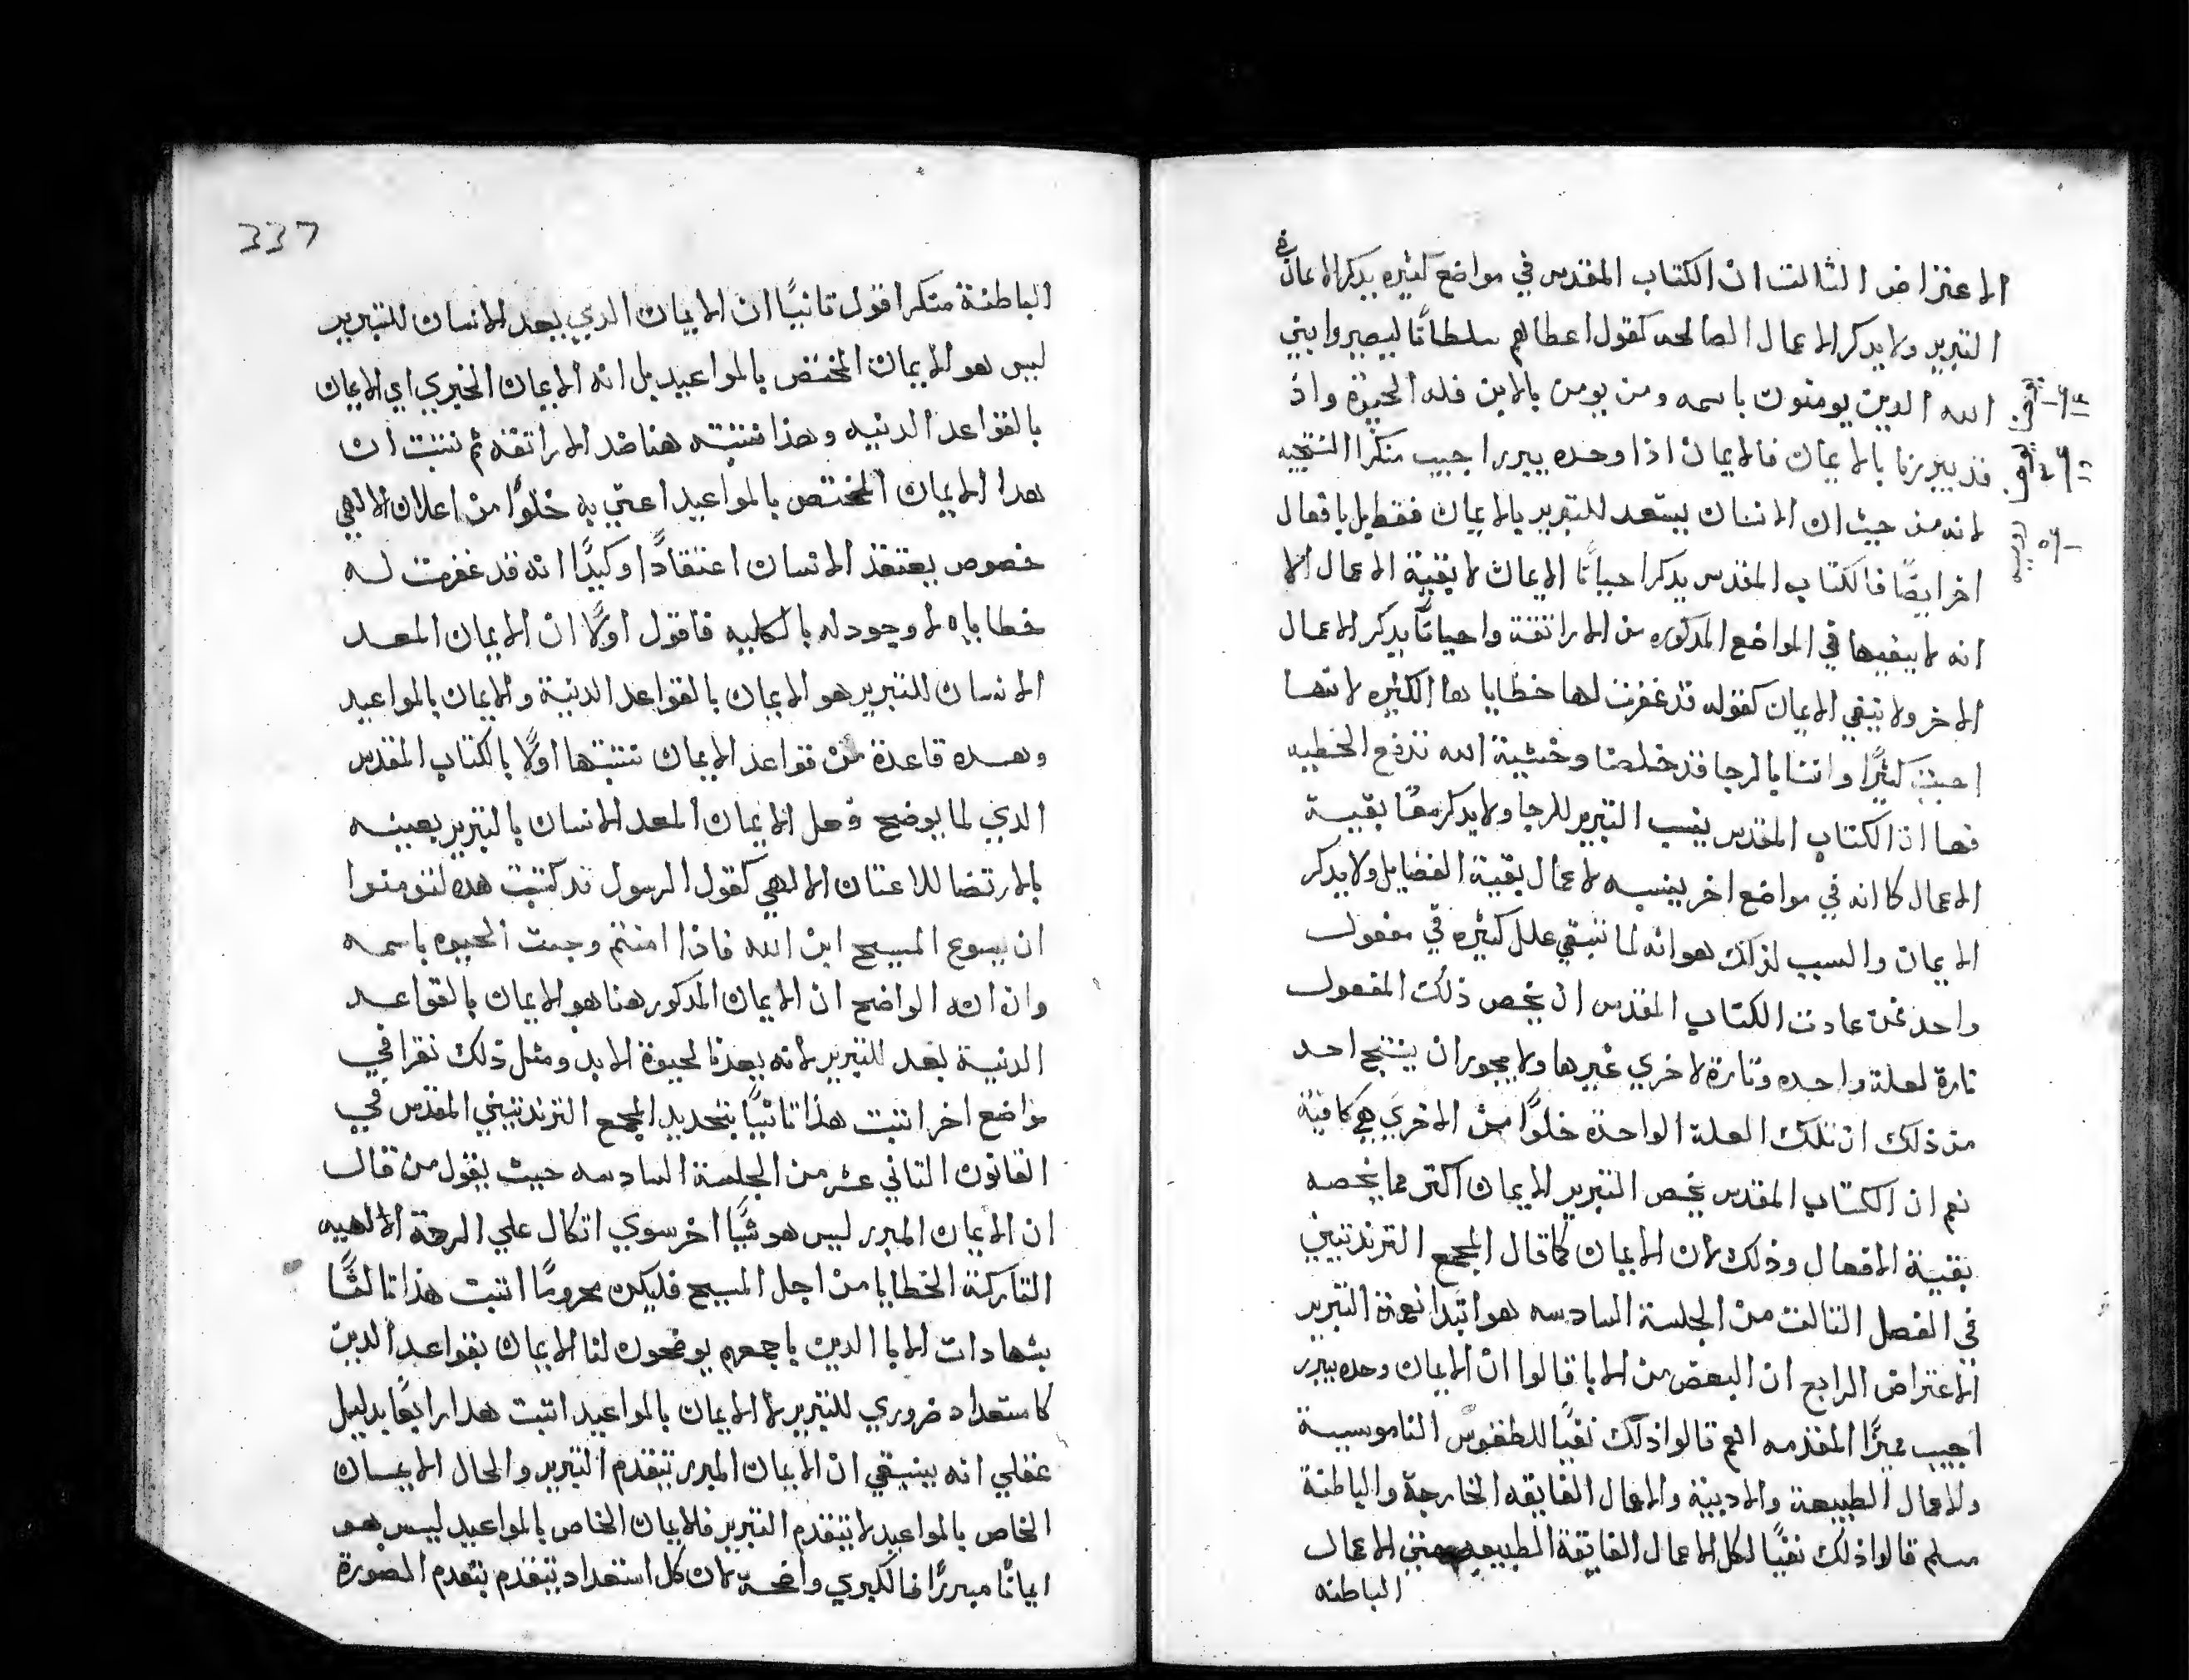 الاعتراض الثالث ان الكتاب المقدس في مواضع كثيره يدكر الايمان في
التبرير ولا يدكر الاعمال الصالحه كقول اعطاهم سلطانًا ليصيروا بني
الله الدين يومنون باسمه ومن يومن بالابن فله الحيوة واذ
قد تبررنا بالايمان فالايمان اذا وحده يبرر اجيب منكرًا النتيجه
لانه من حيث ان الانسان يستعد للتبرير بالايمان فقط بل بافعال
اخر ايضًا فالكتاب المقدس يدكر احيانًا الايمان لا بقية الاعمال الا
انه لا ينفيها في المواضع المدكوره من الاراتقة واحيانًا يدكر الاعمال
الاخر ولا ينفي الايمان كقوله قد غفرت لها خطاياها الكثيره لانها
احبت كثيرًا واننا بالرجا قد خلصنا وخشية الله تدفع الخطيه
فها اذا الكتاب المقدس ينسب التبرير للرجا ولا يدكر معًا بقية
الاعمال كما انه في مواضع اخر ينسبه لاعمال بقية الفضايل ولا يدكر
الايمان والسبب لذلك هو انه لما تتبقي علل كثيره في مفعول
واحد فمن عادت الكتاب المقدس ان يخص ذلك المفعول
تارة لعلة واحده وتارة لاخري غيرها ولا يجوز ان ينتج احد
من ذلك ان تلك العلة الواحدة خلوًا من الاخري هي كافية
نعم ان الكتاب المقدس يخص التبرير الايمان اكتر مما يخصه
بقية الافعال وذلك لان الايمان كما قال المجمع التريدنتيني
في الفصل الثالث من الجلسة السادسه هو ابتدا نعمة التبرير
الاعتراض الرابع ان البعض من الابا قالوا ان الايمان وحده يبرر
اجيب مميزًا المقدمه انهم قالوا ذلك نفيًا للطقوس الناموسية
والاعمال الطبيعة والادبية والاعمال الفايقه الخارجة والباطنة
مسلم قالوا ذلك نفيًا لكل الاعمال الفايقة الطبيعه يعني الاعمال
الباطنه
337
الباطنة منكر اقول ثانيًا ان الايمان الدي يعد الانسان للتبرير
ليس هو الايمان المختص بالمواعيد بل انه الايمان الخبري اي الايمان
بالقواعد الدينيه وهذا نثبته هنا ضد الاراتقة ثم نثبت ان
هدا الايمان المختص بالمواعيد اعني به خلوًا من اعلان الاهي
خصوص يعتقد الانسان اعتقادًا وكيدًا انه قد غفرت له
خطاياه لا وجود له بالكليه فاقول اولًا ان الايمان المعد
الانسان للتبرير هو الايمان بالقواعد الدينية والايمان بالمواعيد
وهده قاعدة من قواعد الايمان نثبتها اولًا بالكتاب المقدس
الدي لما يوضح فعل الايمان المعد الانسان بالتبرير يعينه
بالارتضا للاعتان الالهي كقول الرسول قد كتبت هده لتومنوا
ان يسوع المسيح ابن الله فاذا امنتم وجبت الحيوه باسمه
وان الله الواضح ان الايمان المدكور هنا هو الايمان بالقواعد
الدينية يعد للتبرير لانه يعدنا لحيوة الابد ومثل ذلك نقرا في
مواضع اخر اثبت هذا ثانيًا بتحديد المجمع التريدنتيني المقدس في
القانون الثاني عشر من الجلسة السادسه حيث يقول من قال
ان الايمان المبرر ليس هو شيًا اخر سوي اتكال علي الرحمة الالهيه
التاركة الخطايا من اجل المسيح فليكن محرومًا اثبت هذا ثالثًا
بشهادات الابا الدين باجمعهم يوضحون لنا الايمان بقواعد الدين
كاستعداد ضروري للتبرير لا الايمان بالمواعيد اثبت هدا رابعًا بدليل
عقلي انه ينبغي ان الايمان المبرر يتقدم التبرير والحال الايمان
الخاص بالمواعيد لا يتقدم التبرير فالايمان الخاص بالمواعيد ليس هو
ايمانًا مبررًا فالكبري واضحة لان كل استعداد يتقدم بتقدم الصورة